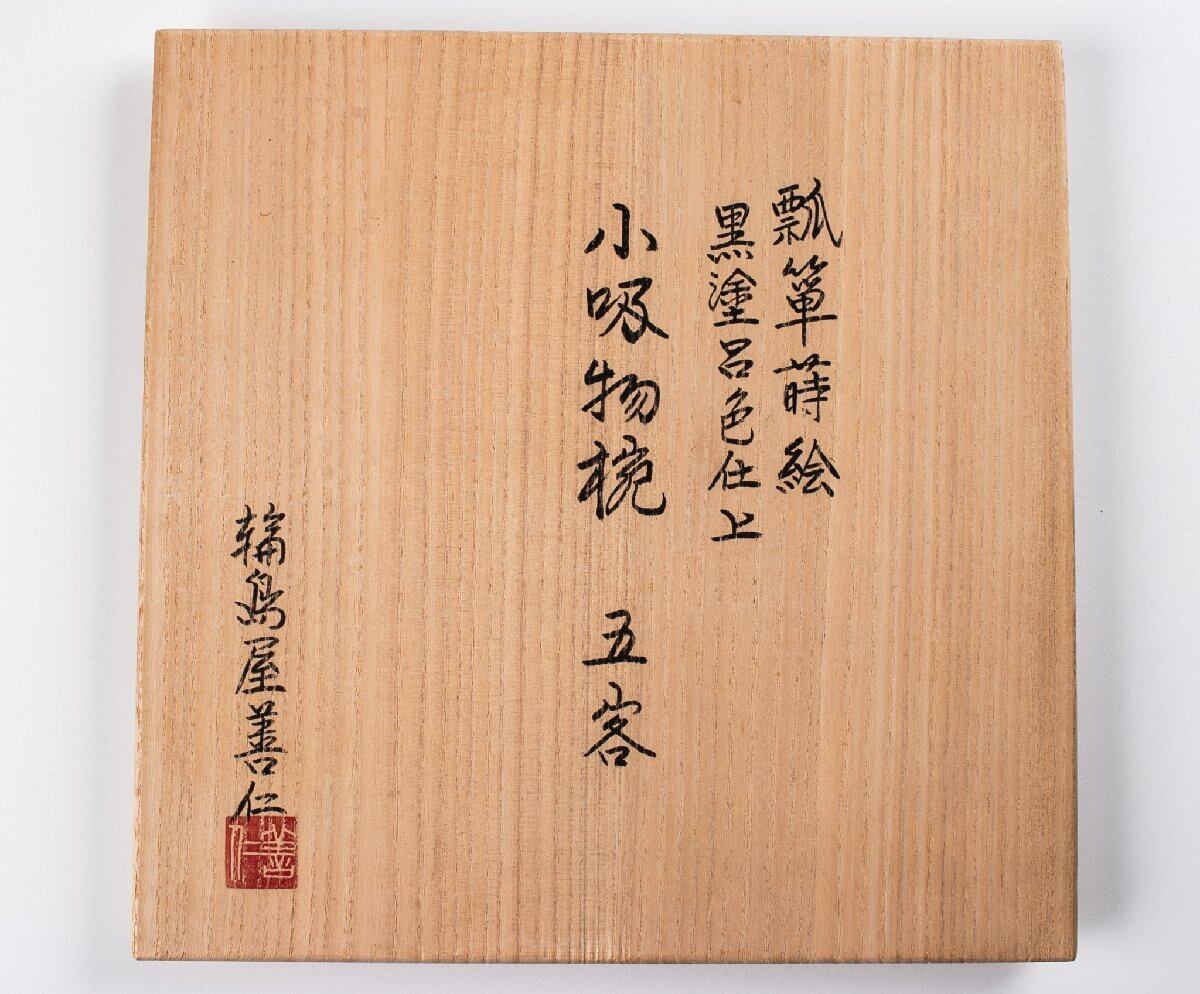 瓢箪蒔絵
黒塗呂色仕上
小吸物椀 五客
輪島屋善仁
善仁